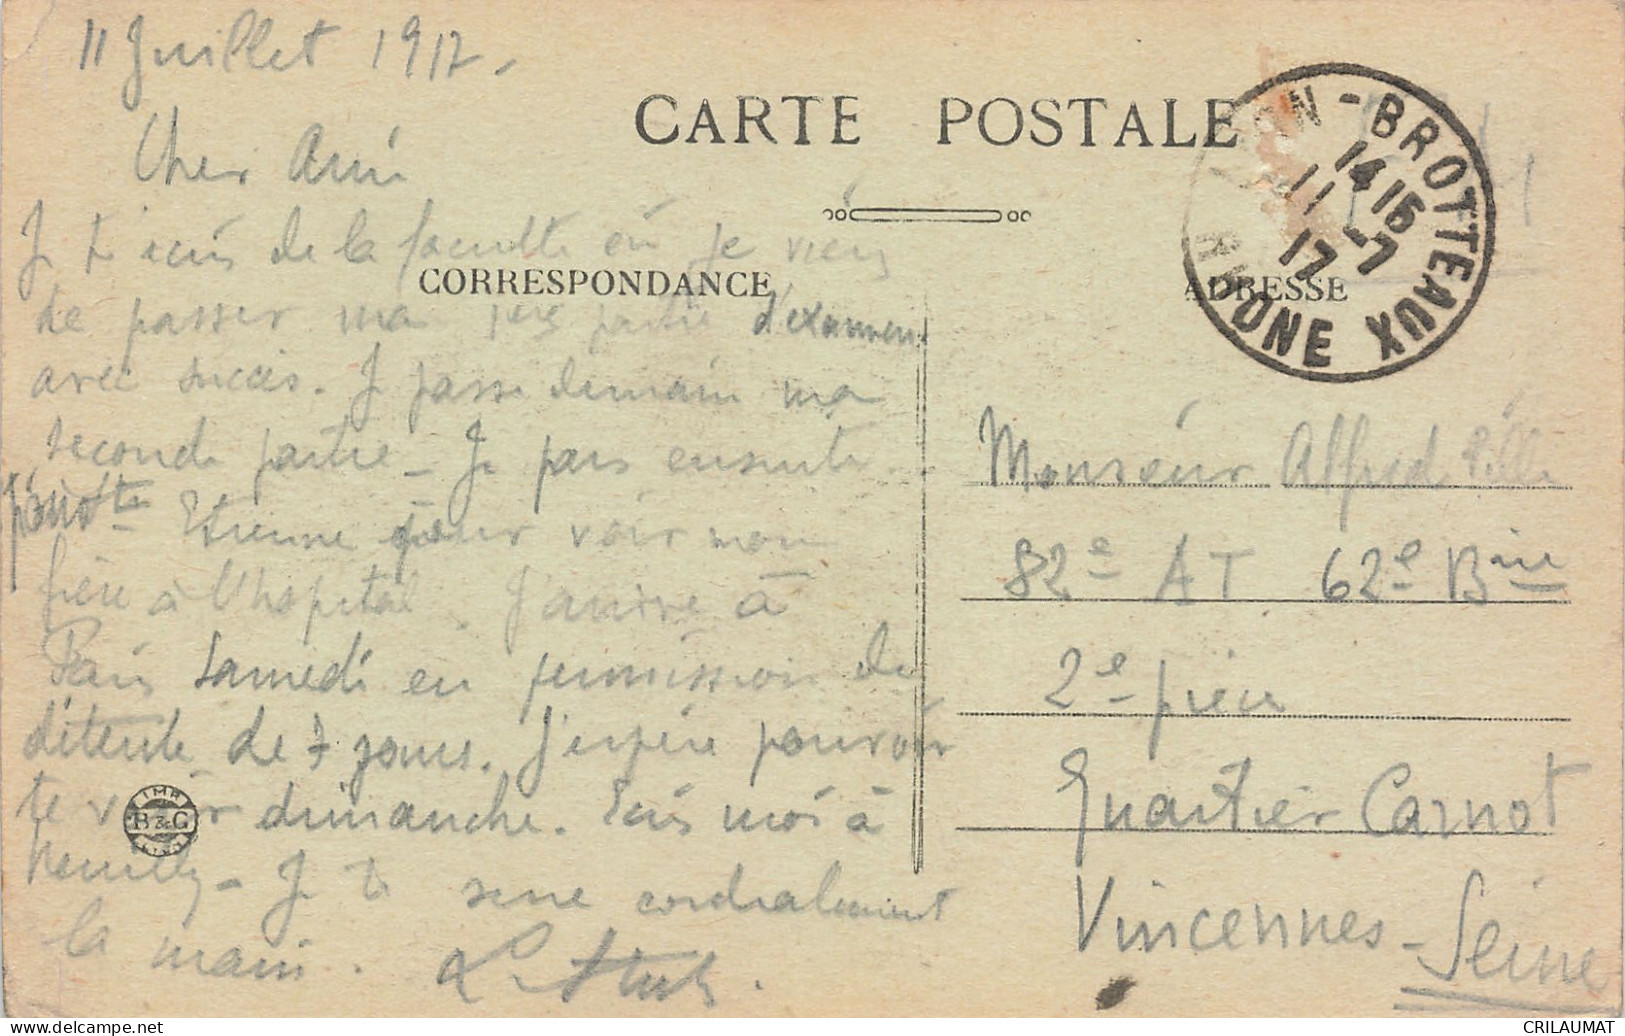 11 Juillet 1917.
CARTE POSTALE
Cher Ami
Je t'écris de la faculté où je viens
CORRESPONDANCE
de passer ma 1ère partie d'examen
avec succès. Je passe demain ma
seconde partie - Je pars ensuite
Etienne pour voir mon
frère à l'hopital. J'arrive à
Paris Samedi en permission de
détente de 7 jours. J'espère pouvoir
te voir dimanche. Ecris moi à
Neuilly - Je te serre cordialement
la main.
IMP
B & G
LYON - BROTTEAUX
14 15
11 - 7
17
RHONE
ADRESSE
Monsieur Alfred
82e AT 62e Bie
2e pièce
Quartier Carnot
Vincennes - Seine
CRILAUMAT